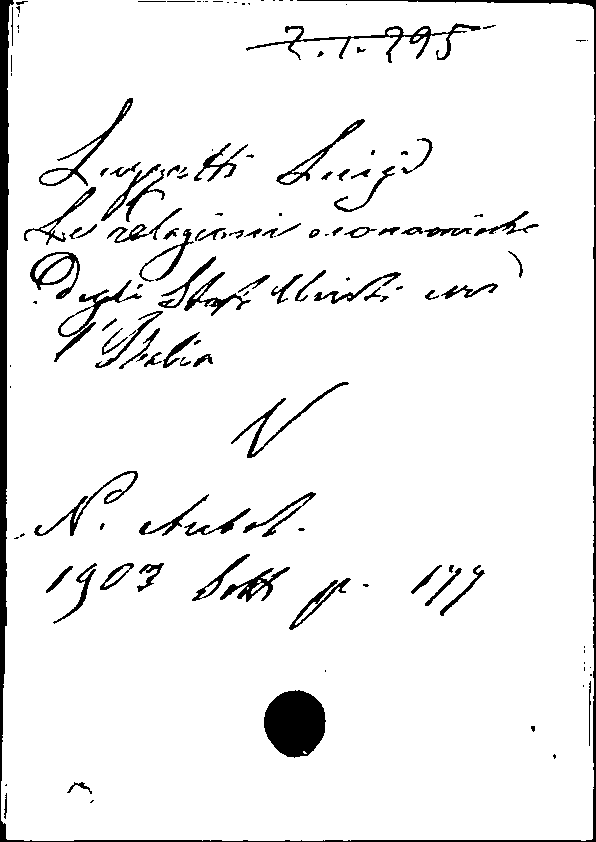 2.1.295
Luzzatti Luigi
Le relazioni economiche
degli Stati Uniti con
l'Italia
V
N. Antol.
1903 Sott p. 177